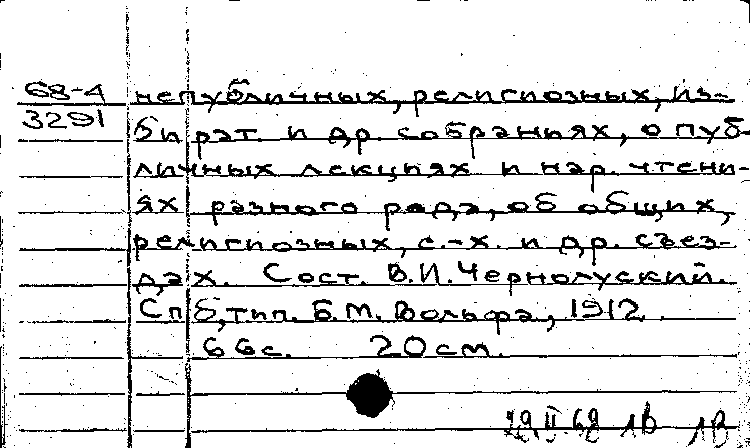 68-4
3291
непубличных, религиозных, из-
бират. и др. собраниях, о пуб-
личных лекциях и нар. чтени-
ях разного рода, об общих,
религиозных, с.-х. и др. съез-
дах. Сост. В.И. Чернолуский.
Спб, тип. Б.М. Вольфа, 1912.
66с. 20см.
29.II.68 1В 1В